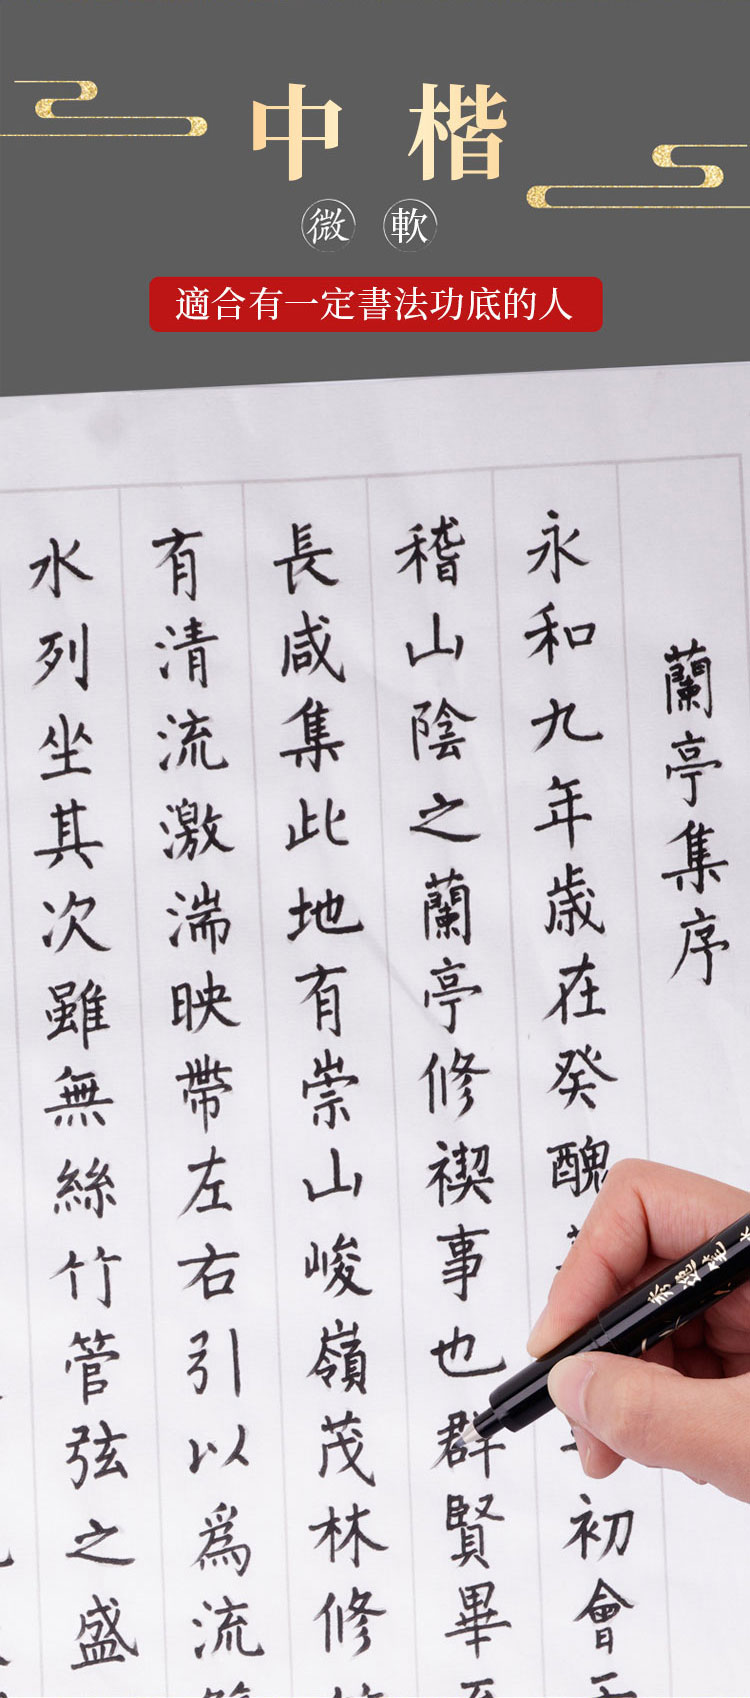 中楷
微軟
適合有一定書法功底的人
蘭亭集序
永和九年歲在癸醜初會
稽山陰之蘭亭修禊事也群賢畢至
長咸集此地有崇山峻嶺茂林修
有清流激湍映帶左右引以爲流
水列坐其次雖無絲竹管弦之盛